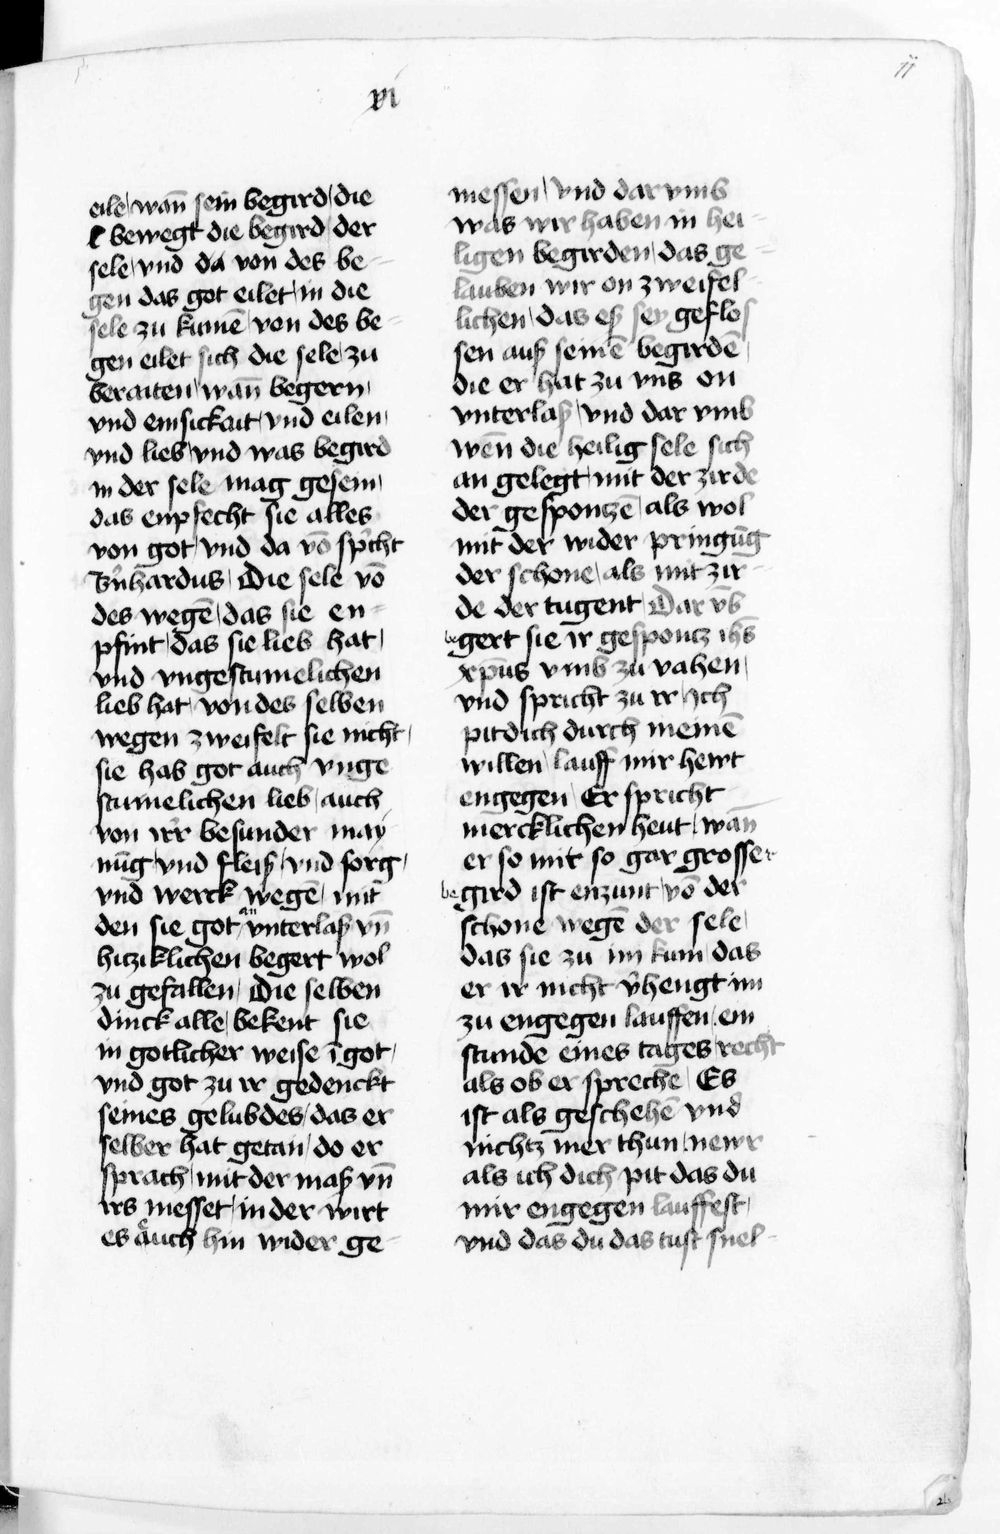 xi
11
eile / wañ sein begird / die
bewegt die begird / der
sele / vnd da von des be-
gen das got eilet / in die
sele zu kumē / von des be-
gen eilet sich die sele / zu
beraiten / wañ begern /
vnd emsickait / vnd eilen /
vnd lieb / vnd was begird
in der sele mag gesein /
das enpfecht sie alles
von got / vnd da vō sp̃cht
B̃nhardus / Die sele vō
des wegē / das sie en-
pfint / das sie lieb hat /
vnd vngestumelichen
lieb hat / von des selben
wegen zweifelt sie nicht /
sie hab got auch vnge
stumelichen lieb / auch
von ir̃r besunder may
nūg / vnd fleiß / vnd sorg /
vnd werck wegē / mit
den sie got an vnterlaß vñ
hiziklichen begert wol
zu gefallen / Die selben
dinck alle / bekent sie
in gotlicher weise ī got /
vnd got zu ir gedenckt
seines gelubdes / das er
selber hat getan / do er
sprach / mit der maß vñ
irs messet / in der wirt
es auch hin wider ge-
messen / vnd dar vmb
was wir haben in hei-
ligen begirden / das ge-
lauben wir on zweifel-
lichen / das eß sey geflos
sen auß seinē begirdē /
die er hat zu vns on
vnterlaß / vnd dar vmb
wēn die heilig sele sich
an gelegt / mit der zirde
der gespontzē / als wol
mit der wider pringūg
der schone / als mit zir-
de der tugent / Dar v̄b
begert sie ir gespontz ih̄s
xp̄us vmb zu vahen /
vnd spricht zu ir / Ich
pit dich durch meinē
willen / lauff mir hewt
engegen / Er spricht
mercklichen heut / wañ
er so mit so gar grosser
begird ist enzunt / vō der
schone wegē der sele /
das sie zu im kum / das
er ir nicht v̄hengt im
zu engegen lauffen / ein
stunde eines tages / recht
als ob er sprechē / Es
ist als geschehē vnd
nichtz mer thun / newr
als ich dich pit das du
mir engegen lauffest /
vnd das du das tust snel-